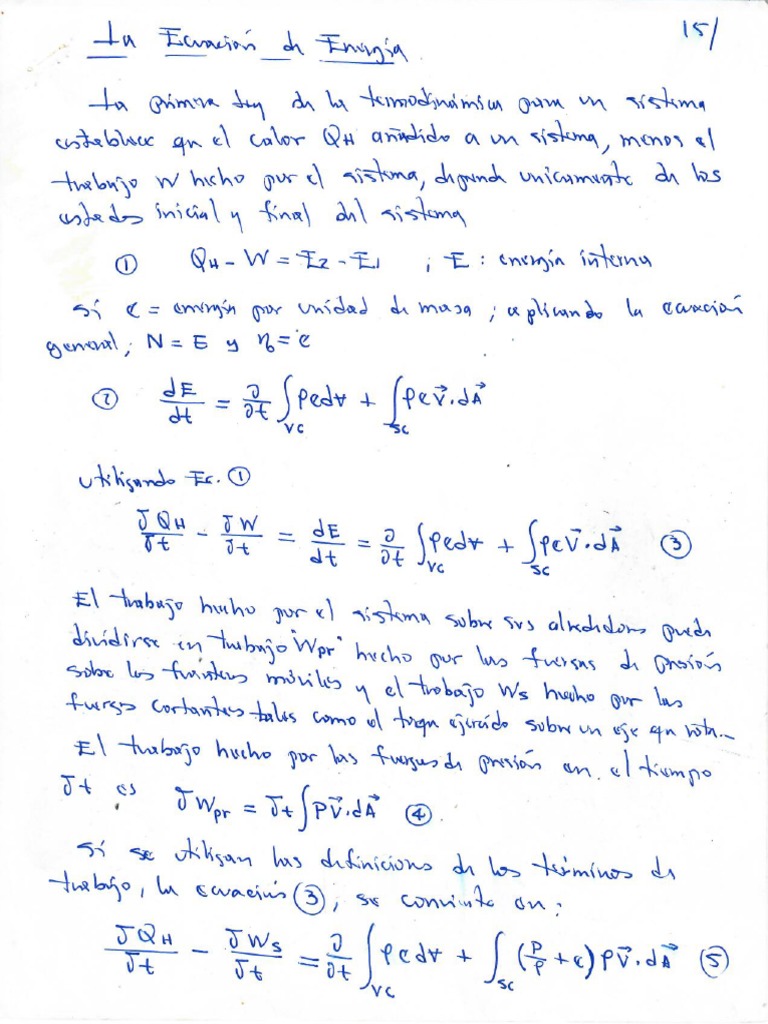 15/
La Ecuación de Energía
La primera ley de la termodinámica para un sistema
establece que el calor QH añadido a un sistema, menos el
trabajo W hecho por el sistema, depende unicamente de los
estados inicial y final del sistema
① QH - W = E2 - E1 ; E : energía interna
Si e = energía por unidad de masa ; aplicando la ecuación
general, N = E y η = e
② dE/dt = ∂/∂t ∫VC ρ e d∀ + ∫SC ρ e V⃗ · dA⃗
utilizando Ec. ①
δQH/δt - δW/δt = dE/dt = ∂/∂t ∫VC ρ e d∀ + ∫SC ρ e V⃗ · dA⃗ ③
El trabajo hecho por el sistema sobre sus alrededores puede
dividirse en trabajo "Wpr" hecho por las fuerzas de presión
sobre las fronteras móviles y el trabajo Ws hecho por las
fuerzas cortantes tales como el torque ejercido sobre un eje que rota.
El trabajo hecho por las fuerzas de presión en el tiempo
δt es δWpr = δt ∫ P V⃗ · dA⃗ ④.
Si se utilizan las definiciones de los términos de
trabajo, la ecuación ③, se convierte en:
δQH/δt - δWs/δt = ∂/∂t ∫VC ρ e d∀ + ∫SC (P/ρ + e) ρ V⃗ · dA⃗ ⑤